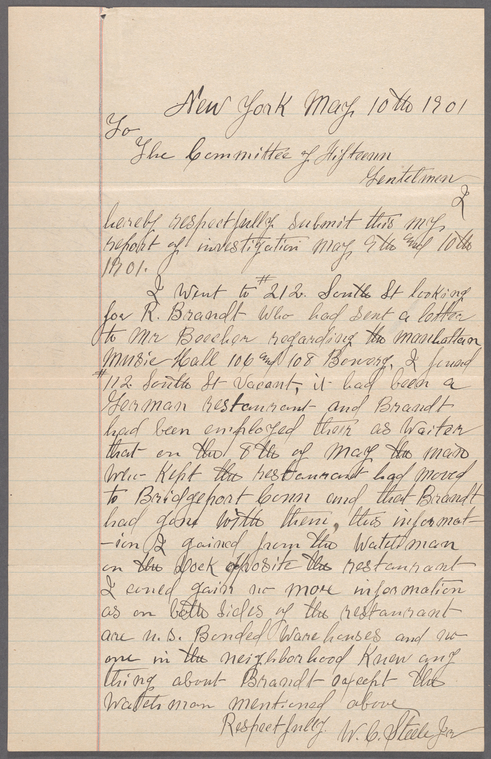 New York May 10th 1901
To
The Committee of Fifteen
Gentelmen
I
hereby respectfully submit this my
report of investigation May 9th and 10th
1901.
I went to #212 South St looking
for R. Brandt who had sent a letter
to Mr Beecher regarding the Manhattan
Music Hall 106 and 108 Bowery, I found
#112 South St vacant, it had been a
German restaurant and Brandt
had been employed their as waiter
that on the 8th of May the man
who kept the restaurant had moved
to Bridgeport Conn and that Brandt
had gone with them, this informat-
-ion I gained from the Watchman
on the Dock opposite the restaurant
I coued gain no more information
as on both sides of the restaurant
are U.S. Bonded Warehouses and no
one in the neighborhood knew any
thing about Brandt except the
Watchman mentioned above
Respectfully W. C. Steele Jr